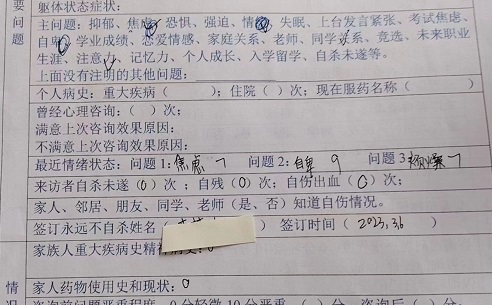 躯体状态症状：
要 主问题：抑郁、焦虑、恐惧、强迫、情感、失眠、上台发言紧张、考试焦虑、
问 自卑、学业成绩、恋爱情感、家庭关系、老师、同学关系、竞选、未来职业
题 生涯、注意力、记忆力、个人成长、入学留学、自杀未遂等。
上面没有注明的其他问题：
个人病史：重大疾病（ ）；住院（ ）次；现在服药名称（ ）
曾经心理咨询：（ ）次：
满意上次咨询效果原因：
不满意上次咨询效果原因：
最近情绪状态：问题1：焦虑 7 问题2：自卑 9 问题3 烦燥 7
来访者自杀未遂（0）次 ；自残（0）次；自伤出血（0）次；
家人、邻居、朋友、同学、老师（是、否）知道自伤情况。
签订永远不自杀姓名（ ）签订时间（ 2023.3.6 ）
家族人重大疾病史精神
情 家人药物使用史和现状：0